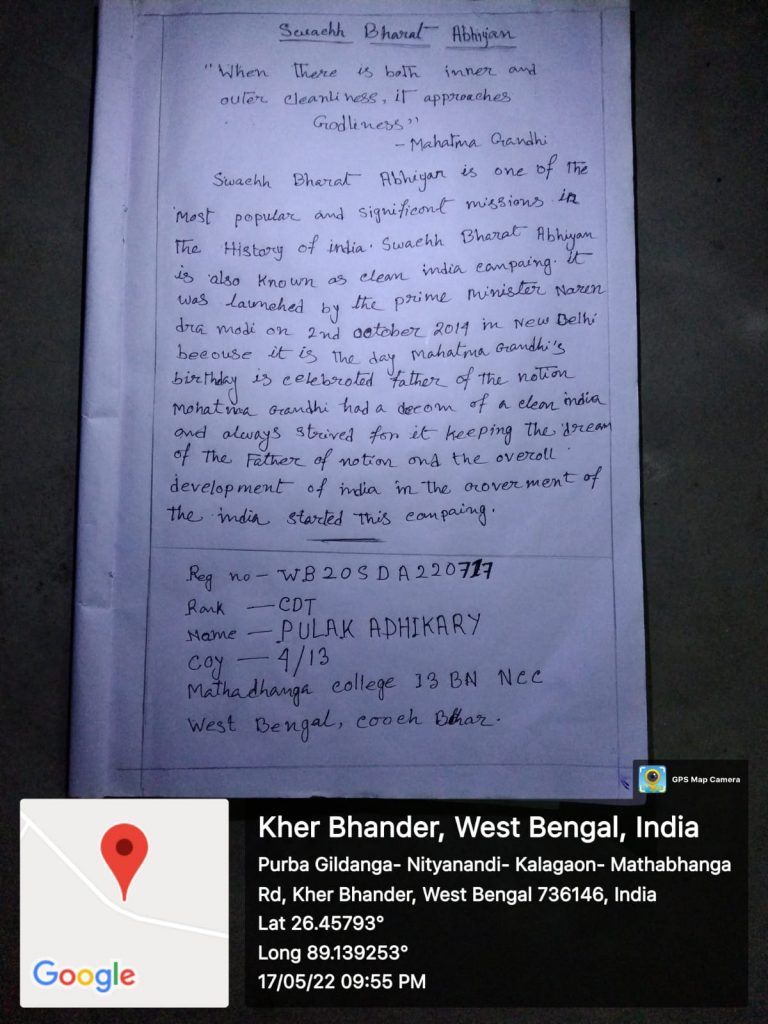 Swachh Bharat Abhiyan
"When there is both inner and
outer cleanliness, it approaches
Godliness"
- Mahatma Gandhi
Swachh Bharat Abhiyan is one of the
most popular and significont missions in
The History of india. Swachh Bharat Abhiyan
is also known as clean india campaing. it
was launched by the prime minister Naren
dra modi on 2nd october 2014 in New Delhi
becouse it is The day Mahatma Gandhi's
birthday is celebroted father of The notion
Mohatma Gandhi had a decom of a clean india
and always strived for it keeping The dream
of The Father of notion ond the overoll
development of india in The Goverment of
The india started This compaing.
Reg no - WB20SDA220717
Rank - CDT
Name - PULAK ADHIKARY
Coy - 4/13
Mathadhanga college 13 BN NCC
West Bengal, cooch Behar.
GPS Map Camera
Kher Bhander, West Bengal, India
Purba Gildanga- Nityanandi- Kalagaon- Mathabhanga
Rd, Kher Bhander, West Bengal 736146, India
Lat 26.45793°
Long 89.139253°
17/05/22 09:55 PM
Google